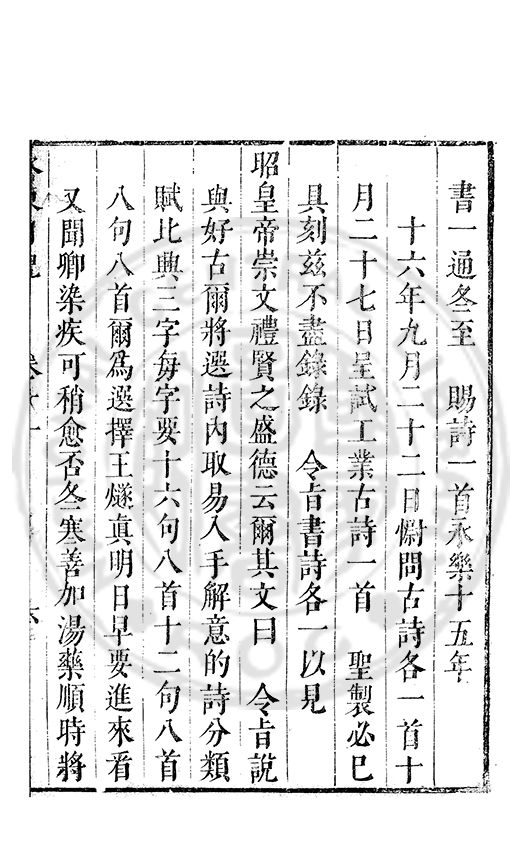 書一通冬至　賜詩一首永樂十五年
十六年九月二十二日慰問古詩各一首十
月二十七日呈試工業古詩一首　聖製必巳
具刻茲不盡錄錄　令旨書詩各一以見
昭皇帝崇文禮賢之盛德云爾其文曰　令旨說
與好古爾將選詩內取易入手解意的詩分類
賦比興三字每字要十六句八首十二句八首
八句八首爾爲選擇王燧眞明日早要進來看
又聞卿染疾可稍愈否冬寒善加湯藥順時將